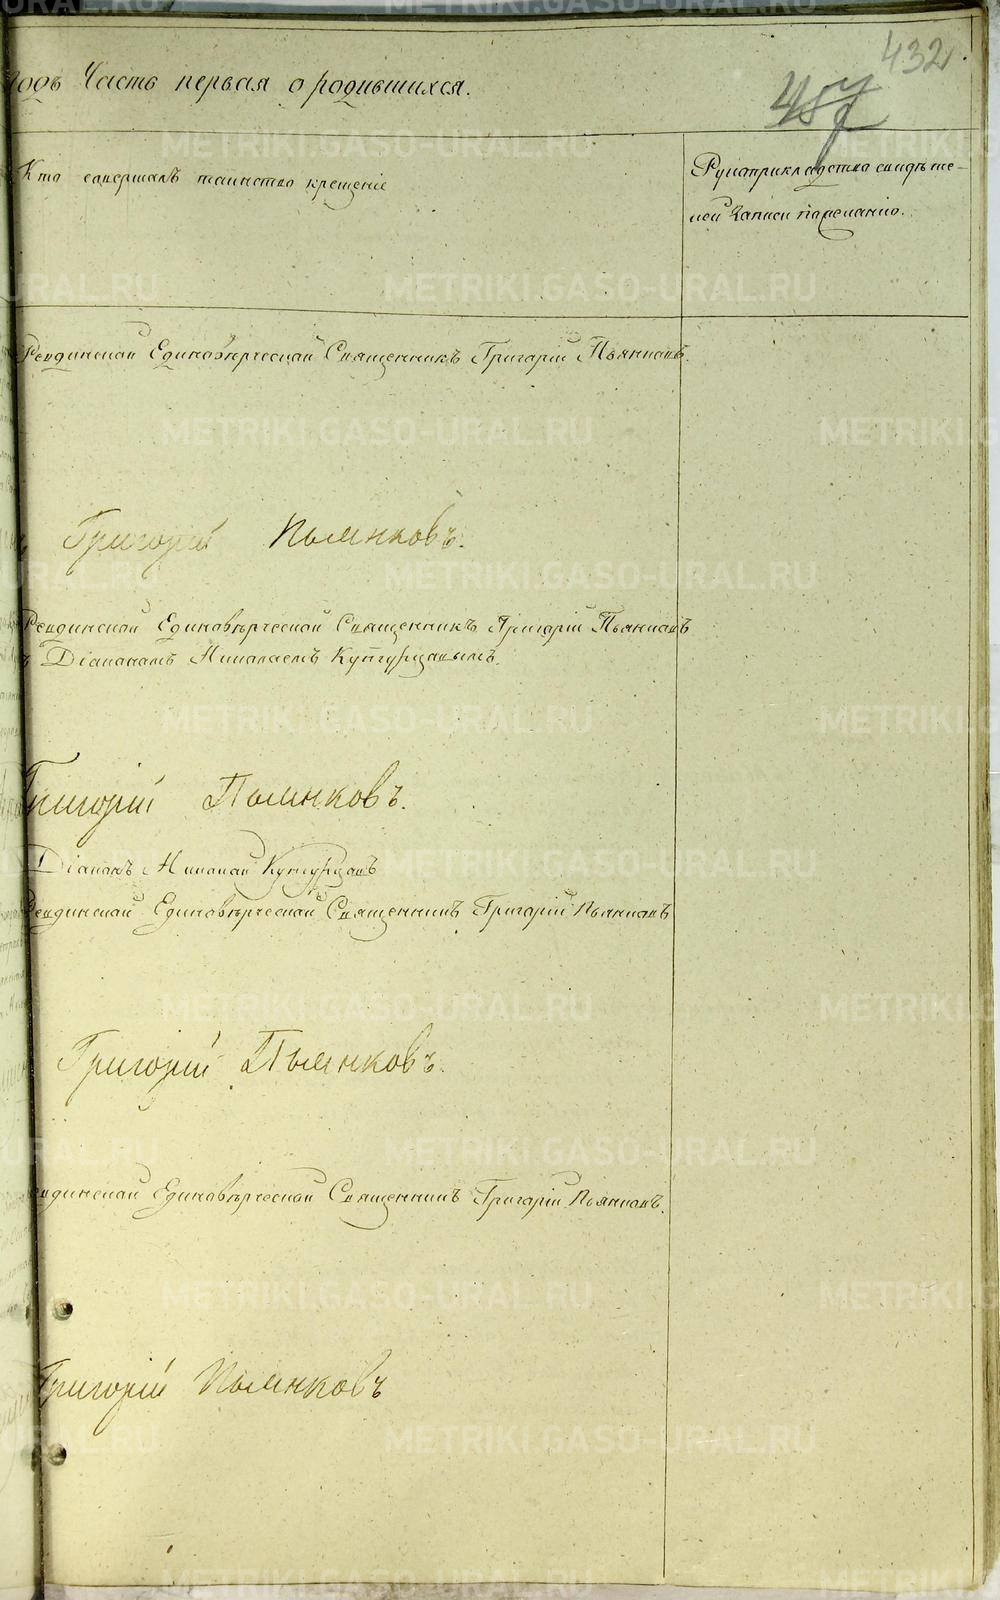 432.
457
годъ Часть первая о родившихся.
Кто совершалъ таинство крещенiе
Рукоприкладство свидѣте-
лей записи по желанiю.
Ревдинской Единовѣрческой Священникъ Григорiй Пьянковъ.
Григорiй Пьянковъ.
Ревдинской Единовѣрческой Священникъ Григорiй Пьянковъ
съ Дiакономъ Николаемъ Кунгурцовымъ.
Григорiй Пьянковъ.
Дiаконъ Николай Кунгурцовъ
Ревдинской Единовѣрческой Священникъ Григорiй Пьянковъ
Григорiй Пьянковъ.
Ревдинской Единовѣрческой Священникъ Григорiй Пьянковъ.
Григорiй Пьянковъ
METRIKI.GASO-URAL.RU